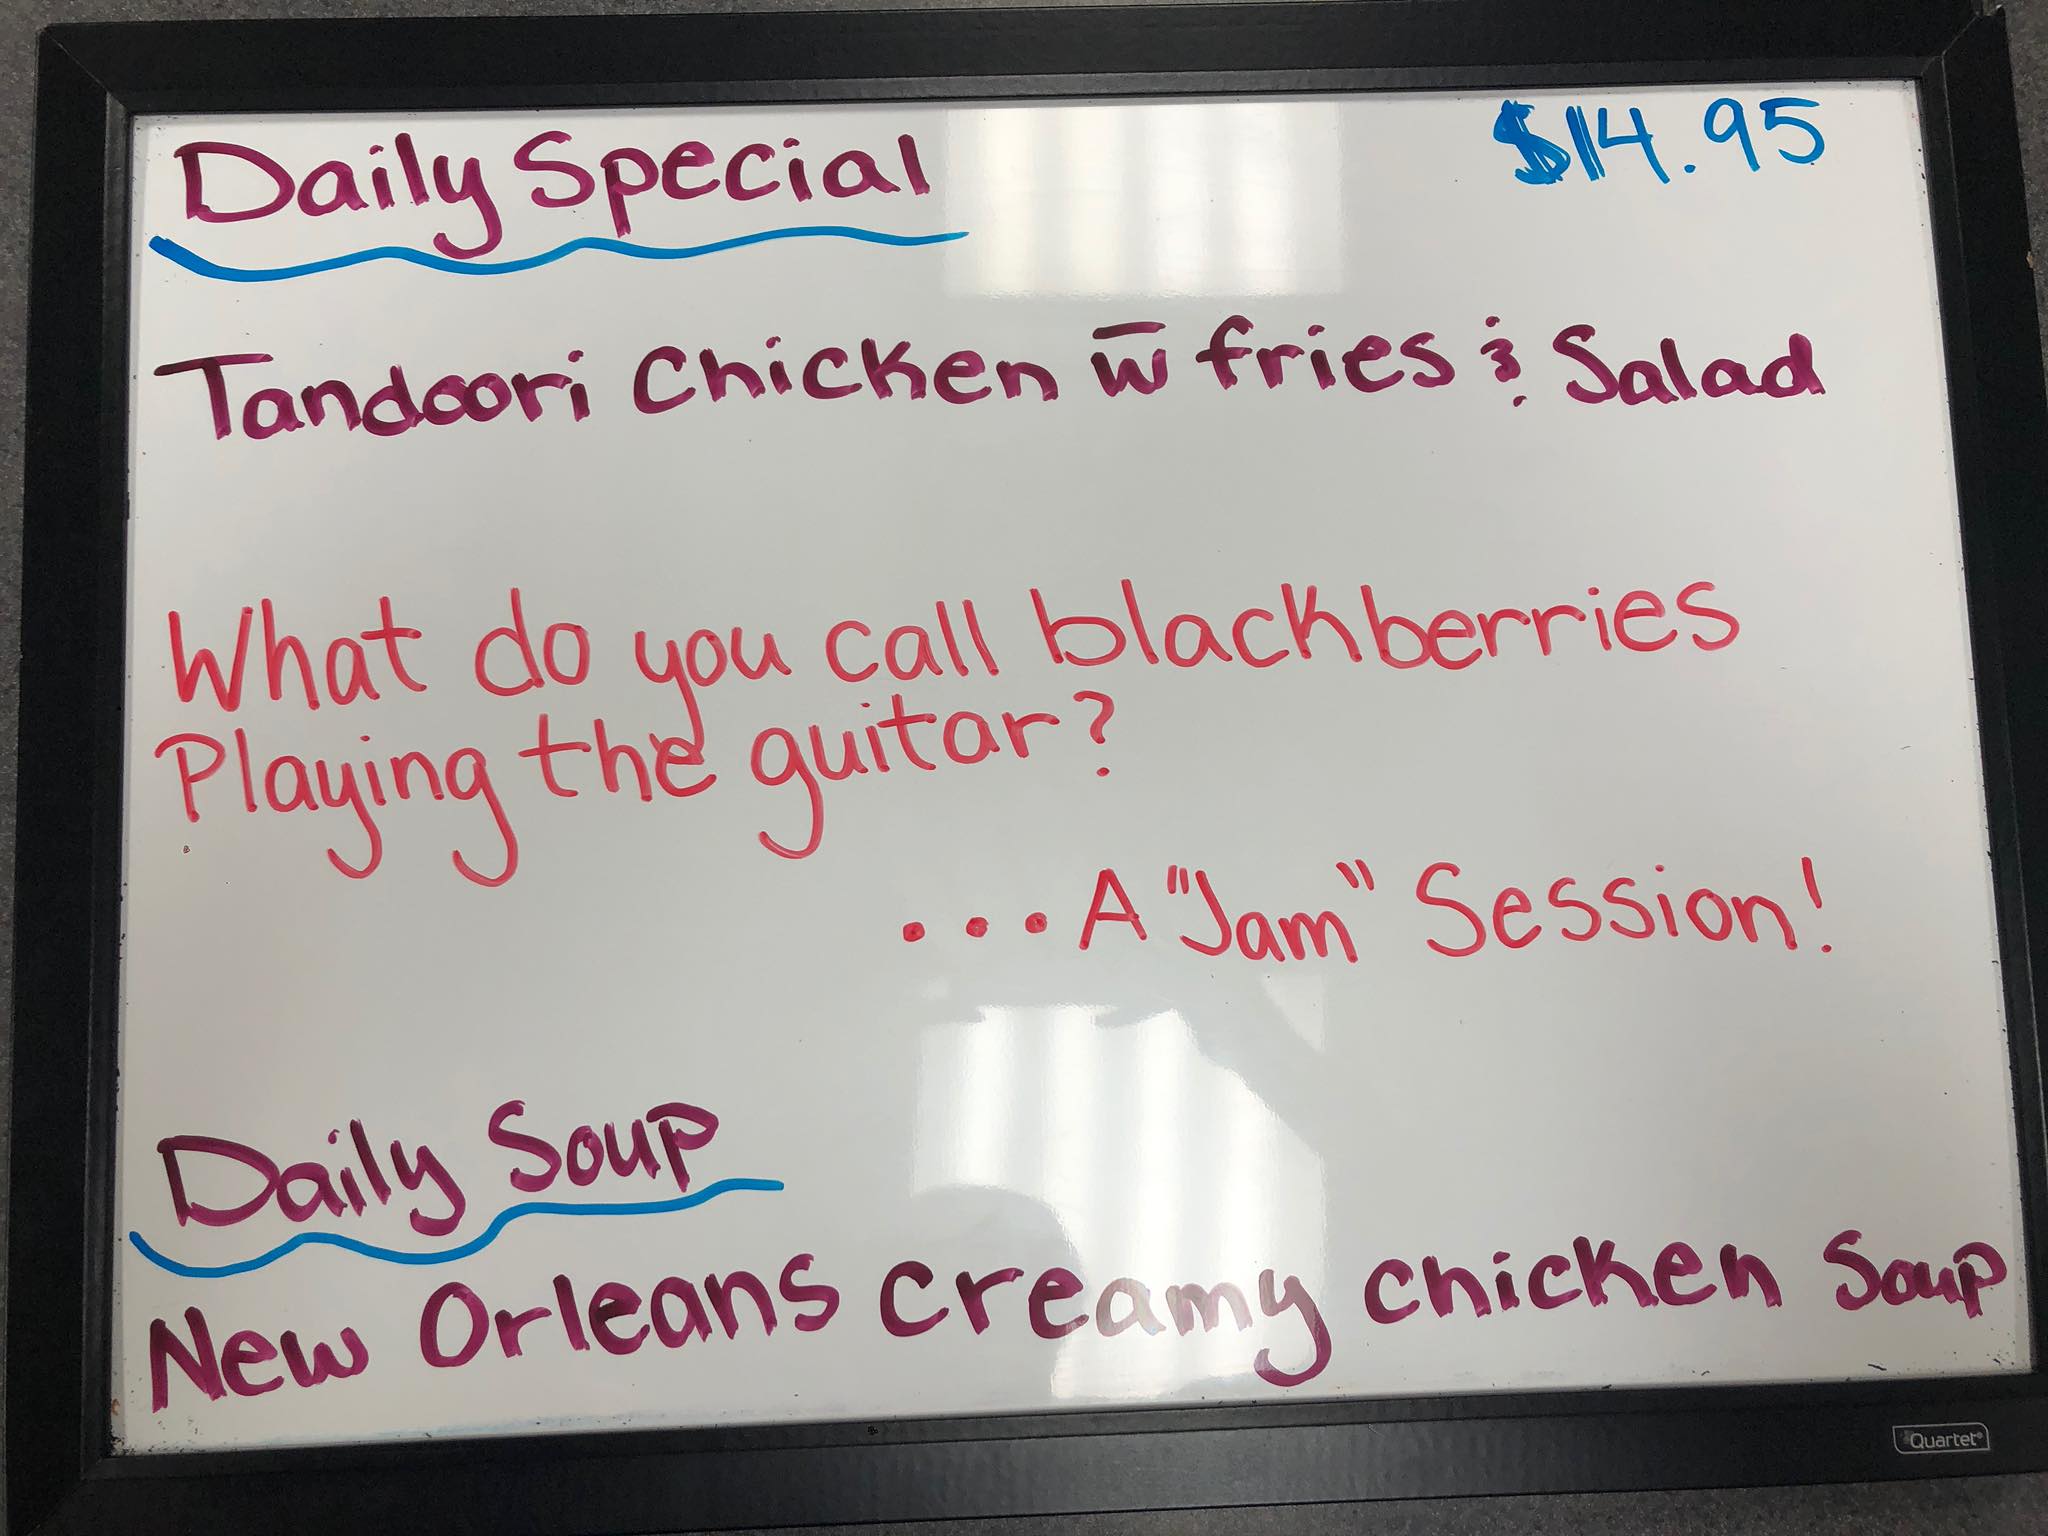 Daily Special $14.95
Tandoori Chicken w̅ fries & Salad
What do you call blackberries
Playing the guitar?
...A "Jam" Session!
Daily Soup
New Orleans creamy chicken Soup
Quartet®